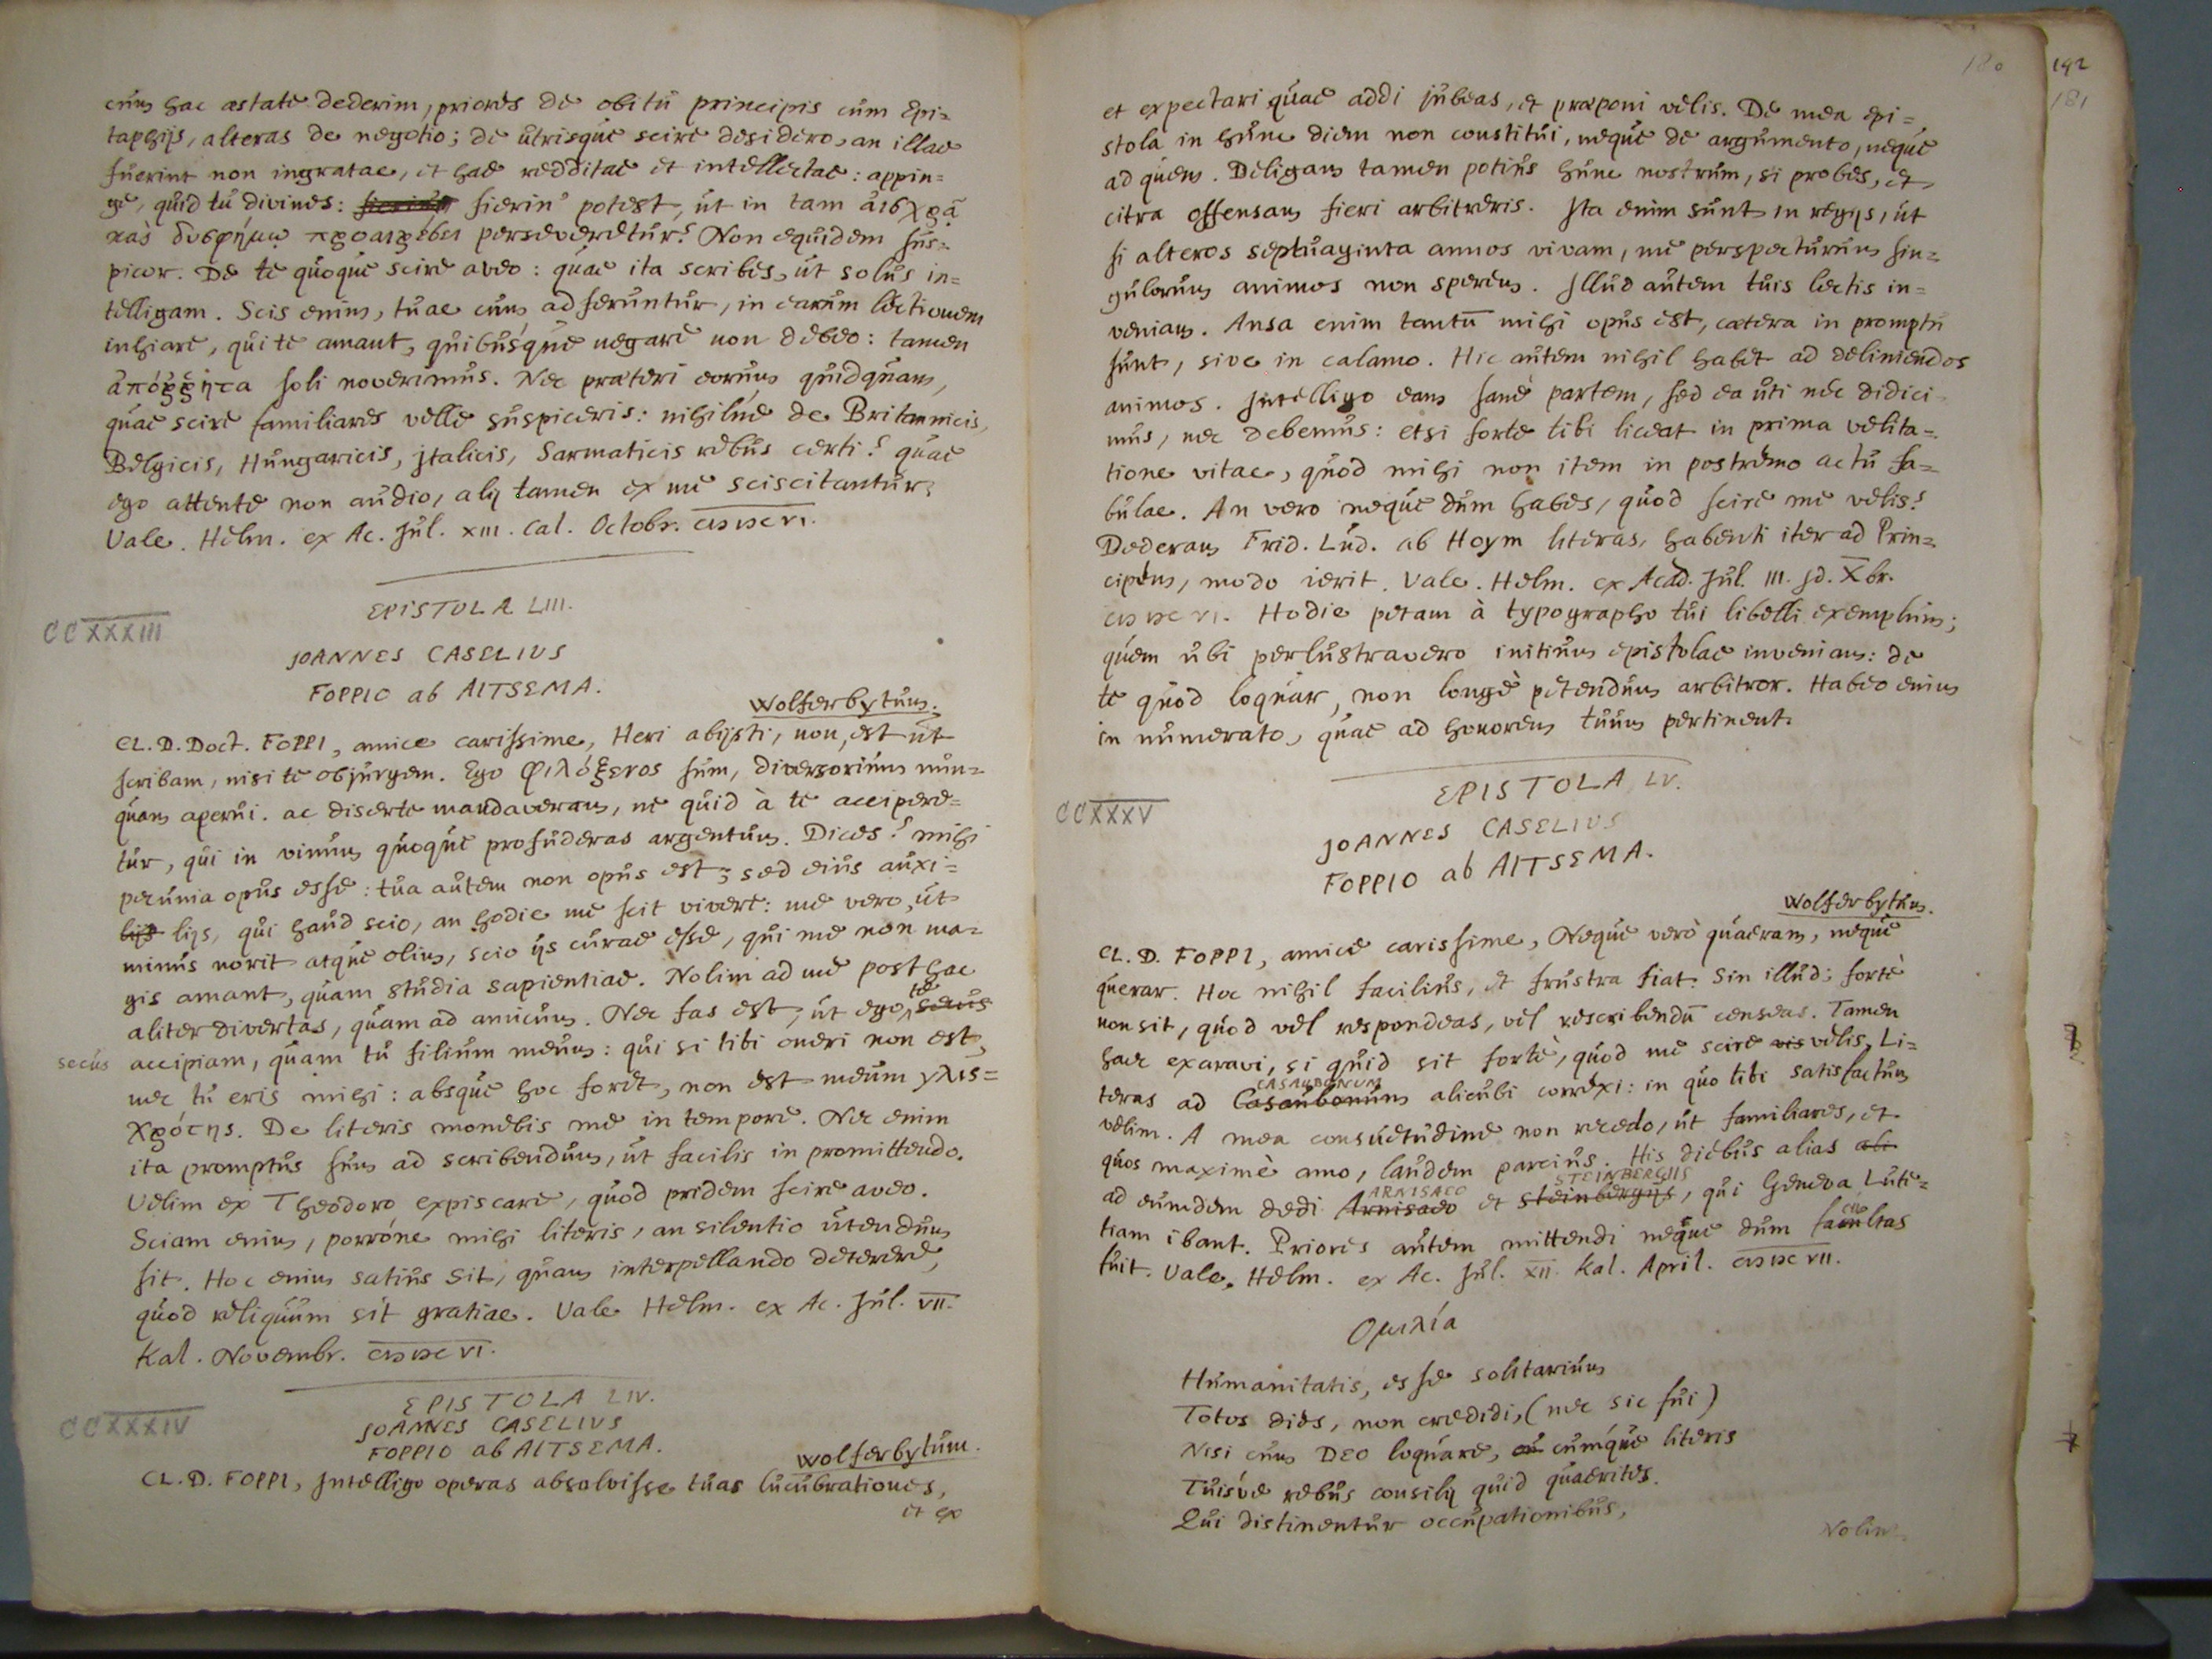 cum hac aestate dederim, priores de obitu principis cum Epi=
taphijs, alteras de negotio; de utrisque scire desidero, an illae
fuerint non ingratae, et hae redditae et intellectae: appin=
ge, quid tu divines: fierin' potest, ut in tam αἰσχρᾷ
καὶ δυσφήμῳ προαιρέσει perseveretur? Non equidem sus=
picor. De te quoque scire aveo: quae ita scribes, ut solus in=
telligam. Scis enim, tuae cum adferuntur, in earum lectionem
inhiare, qui te amant, quibusque negare non debeo: tamen
ἀπόῤῥητα soli noverimus. Nec praeteri eorum quidquam,
quae scire familiares velle suspiceris: nihilne de Britannicis,
Belgicis, Hungaricis, Italicis, Sarmaticis rebus certi? quae
ego attente non audio, alij tamen ex me sciscitantur.
Vale. Helm. ex Ac. Jul. XIII. Cal. Octobr. CIƆ IƆC VI.
CCXXXIII
EPISTOLA LIII.
JOANNES CASELIUS
FOPPIO ab AITSEMA.
Wolferbytum.
CL. D. Doct. FOPPI, amice carissime, Heri abijsti, non, est ut
scribam, nisi te objurgem. Ego φιλόξενος sum, diversorium nun=
quam aperui. ac diserte mandaveram, ne quid à te accipere=
tur, qui in vinum quoque profuderas argentum. Dices? mihi
pecunia opus esse: tua autem non opus est; sed eius auxi=
lijs, qui haud scio, an hodie me scit vivere: me vero, ut
minus norit atque olim, scio ijs curae esse, qui me non ma=
gis amant, quam studia sapientiae. Nolim ad me posthac
aliter divertas, quam ad amicum. Nec fas est, ut ego, te secus
secus accipiam, quam tu filium meum: qui si tibi oneri non est,
nec tu eris mihi: absque hoc foret, non est meum γλισ=
χρότης. De literis monebis me in tempore. Nec enim
ita promptus sum ad scribendum, ut facilis in promittendo.
Velim ex Theodoro expiscare, quod pridem scire aveo.
Sciam enim, porrone mihi literis, an silentio utendum
sit. Hoc enim satius sit, quam interpellando deterere,
quod reliquum sit gratiae. Vale Helm. ex Ac. Jul. VII.
Kal. Novembr. CIƆ IƆC VI.
CCXXXIV
EPISTOLA LIV.
JOANNES CASELIUS
FOPPIO ab AITSEMA.
Wolferbytum.
CL. D. FOPPI, Intelligo operas absolvisse tuas lucubrationes,
et ex
180
192
181
et expectari quae addi jubeas, et praeponi velis. De mea epi=
stola in hunc diem non constitui, neque de argumento, neque
ad quem. Deligam tamen potius hunc nostrum, si probes, et
citra offensam fieri arbitreris. Ita enim sunt in regijs, ut
si alteros septuaginta annos vivam, me perspecturum sin=
gulorum animos non sperem. Illud autem tuis lectis in=
veniam. Ansa enim tantū mihi opus est, caetera in promptu
sunt, sive in calamo. Hic autem nihil habet ad deliniendos
animos. Intelligo eam sane partem, sed ea uti nec didici=
mus, nec debemus: etsi forte tibi liceat in prima velita=
tione vitae, quod mihi non item in postremo actu fa=
bulae. An vero neque dum habes, quod scire me velis?
Dederam Frid. Lud. ab Hoym literas, habenti iter ad Prin=
cipem, modo ierit. Vale. Helm. ex Acad. Jul. III. Id. Xbr.
CIƆ IƆC VI. Hodie petam à typographo tui libelli exemplum;
quem ubi perlustravero initium epistolae inveniam: de
te quod loquar, non longè petendum arbitror. Habeo enim
in numerato, quae ad honorem tuum pertinent.
CCXXXV
EPISTOLA LV.
JOANNES CASELIUS
FOPPIO ab AITSEMA.
Wolferbytum.
CL. D. FOPPI, amice carissime, Neque verò quaeram, neque
querar. Hoc nihil facilius, et frustra fiat. Sin illud; fortè
non sit, quod vel respondeas, vel rescribendū censeas. Tamen
haec exaravi, si quid sit fortè, quod me scire vis velis. Li=
CASAUBONUM
teras ad Casaubonum alicubi correxi: in quo tibi satisfactum
velim. A mea consuetudine non recedo, ut familiares, et
quos maximè amo, laudem parcius. His diebus alias ab
ARNISAEO STEINBERGIIS
ad eumdem dedi Arnisaeo et Steinbergijs, qui Geneva Lute=
tiam ibant. Priores autem mittendi neque dum facultas
fuit. Vale. Helm. ex Ac. Jul. XII. Kal. April. CIƆ IƆC VII.
Ομιλία
Humanitatis, esse solitarium
Totos dies, non credidi, (nec sic fui)
Nisi cum DEO loquare, cumque literis
Tuisve rebus consilij quid quaerites.
Qui distinentur occupationibus,
Nolim